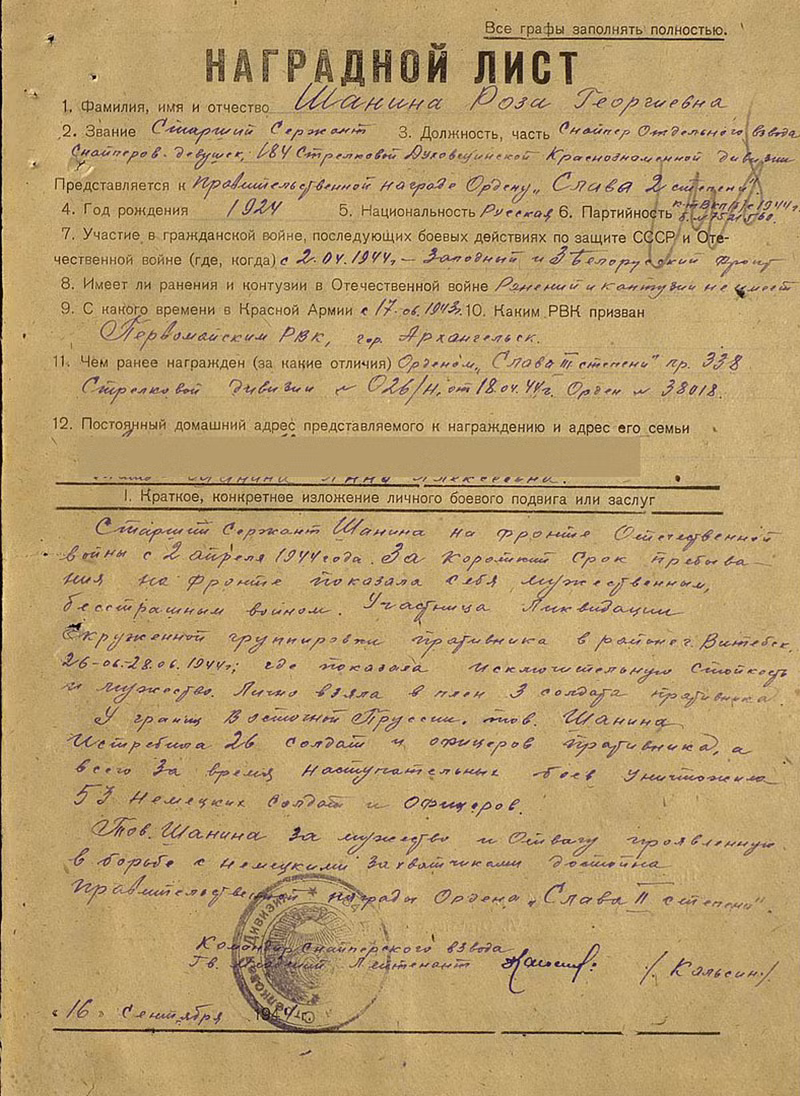 Все графы заполнять полностью.
НАГРАДНОЙ ЛИСТ
1. Фамилия, имя и отчество Шанина Роза Георгиевна
2. Звание Старший Сержант 3. Должность, часть Снайпер Отдельного взвода
Снайперов-девушек, 184 Стрелковой Духовщинской Краснознаменной дивизии
Представляется к правительственной награде Ордену „Слава 2 степени".
4. Год рождения 1924 5. Национальность Русская 6. Партийность к-т ВКП(б) с 1944г.
7. Участие в гражданской войне, последующих боевых действиях по защите СССР и Оте-
чественной войне (где, когда) с 2.04.1944г – Западный и 3 Белорусский фронт
8. Имеет ли ранения и контузии в Отечественной войне Ранений и контузии не имеет
9. С какого времени в Красной Армии с 17.06.1943г. 10. Каким РВК призван
Первомайским РВК, гор. Архангельск.
11. Чем ранее награжден (за какие отличия) Орденом „Слава III степени" пр. 338
Стрелковой дивизии № 026/н. от 18.04.44г. Орден № 38018.
12. Постоянный домашний адрес представляемого к награждению и адрес его семьи
Шанина Анна Алексеевна.
I. Краткое, конкретное изложение личного боевого подвига или заслуг
Старший Сержант Шанина на фронте Отечественной
войны с 2 апреля 1944 года. За короткий срок пребыва-
ния на фронте показала себя мужественным,
бесстрашным воином. Участница Ликвидации
Окруженной группировки пративника в районе г. Витебск,
26-06.-28.06.1944г; где показала исключительную стойкость
и мужество. Лично взяла в плен 3 солдата пративника.
У границ Восточной Пруссии. тов. Шанина
Истребила 26 солдат и офицеров пративника, а
всего за время наступательных боев уничтожила
53 немецких солдат и офицеров.
Тов. Шанина за мужество и отвагу проявленную
в борьбе с немецкими захватчиками достойна
правительственной награды Ордена „Слава II степени".
Командир Снайперского взвода
Гв. Младший Лейтенант /. Кольсин./
«16» Сентября 1944